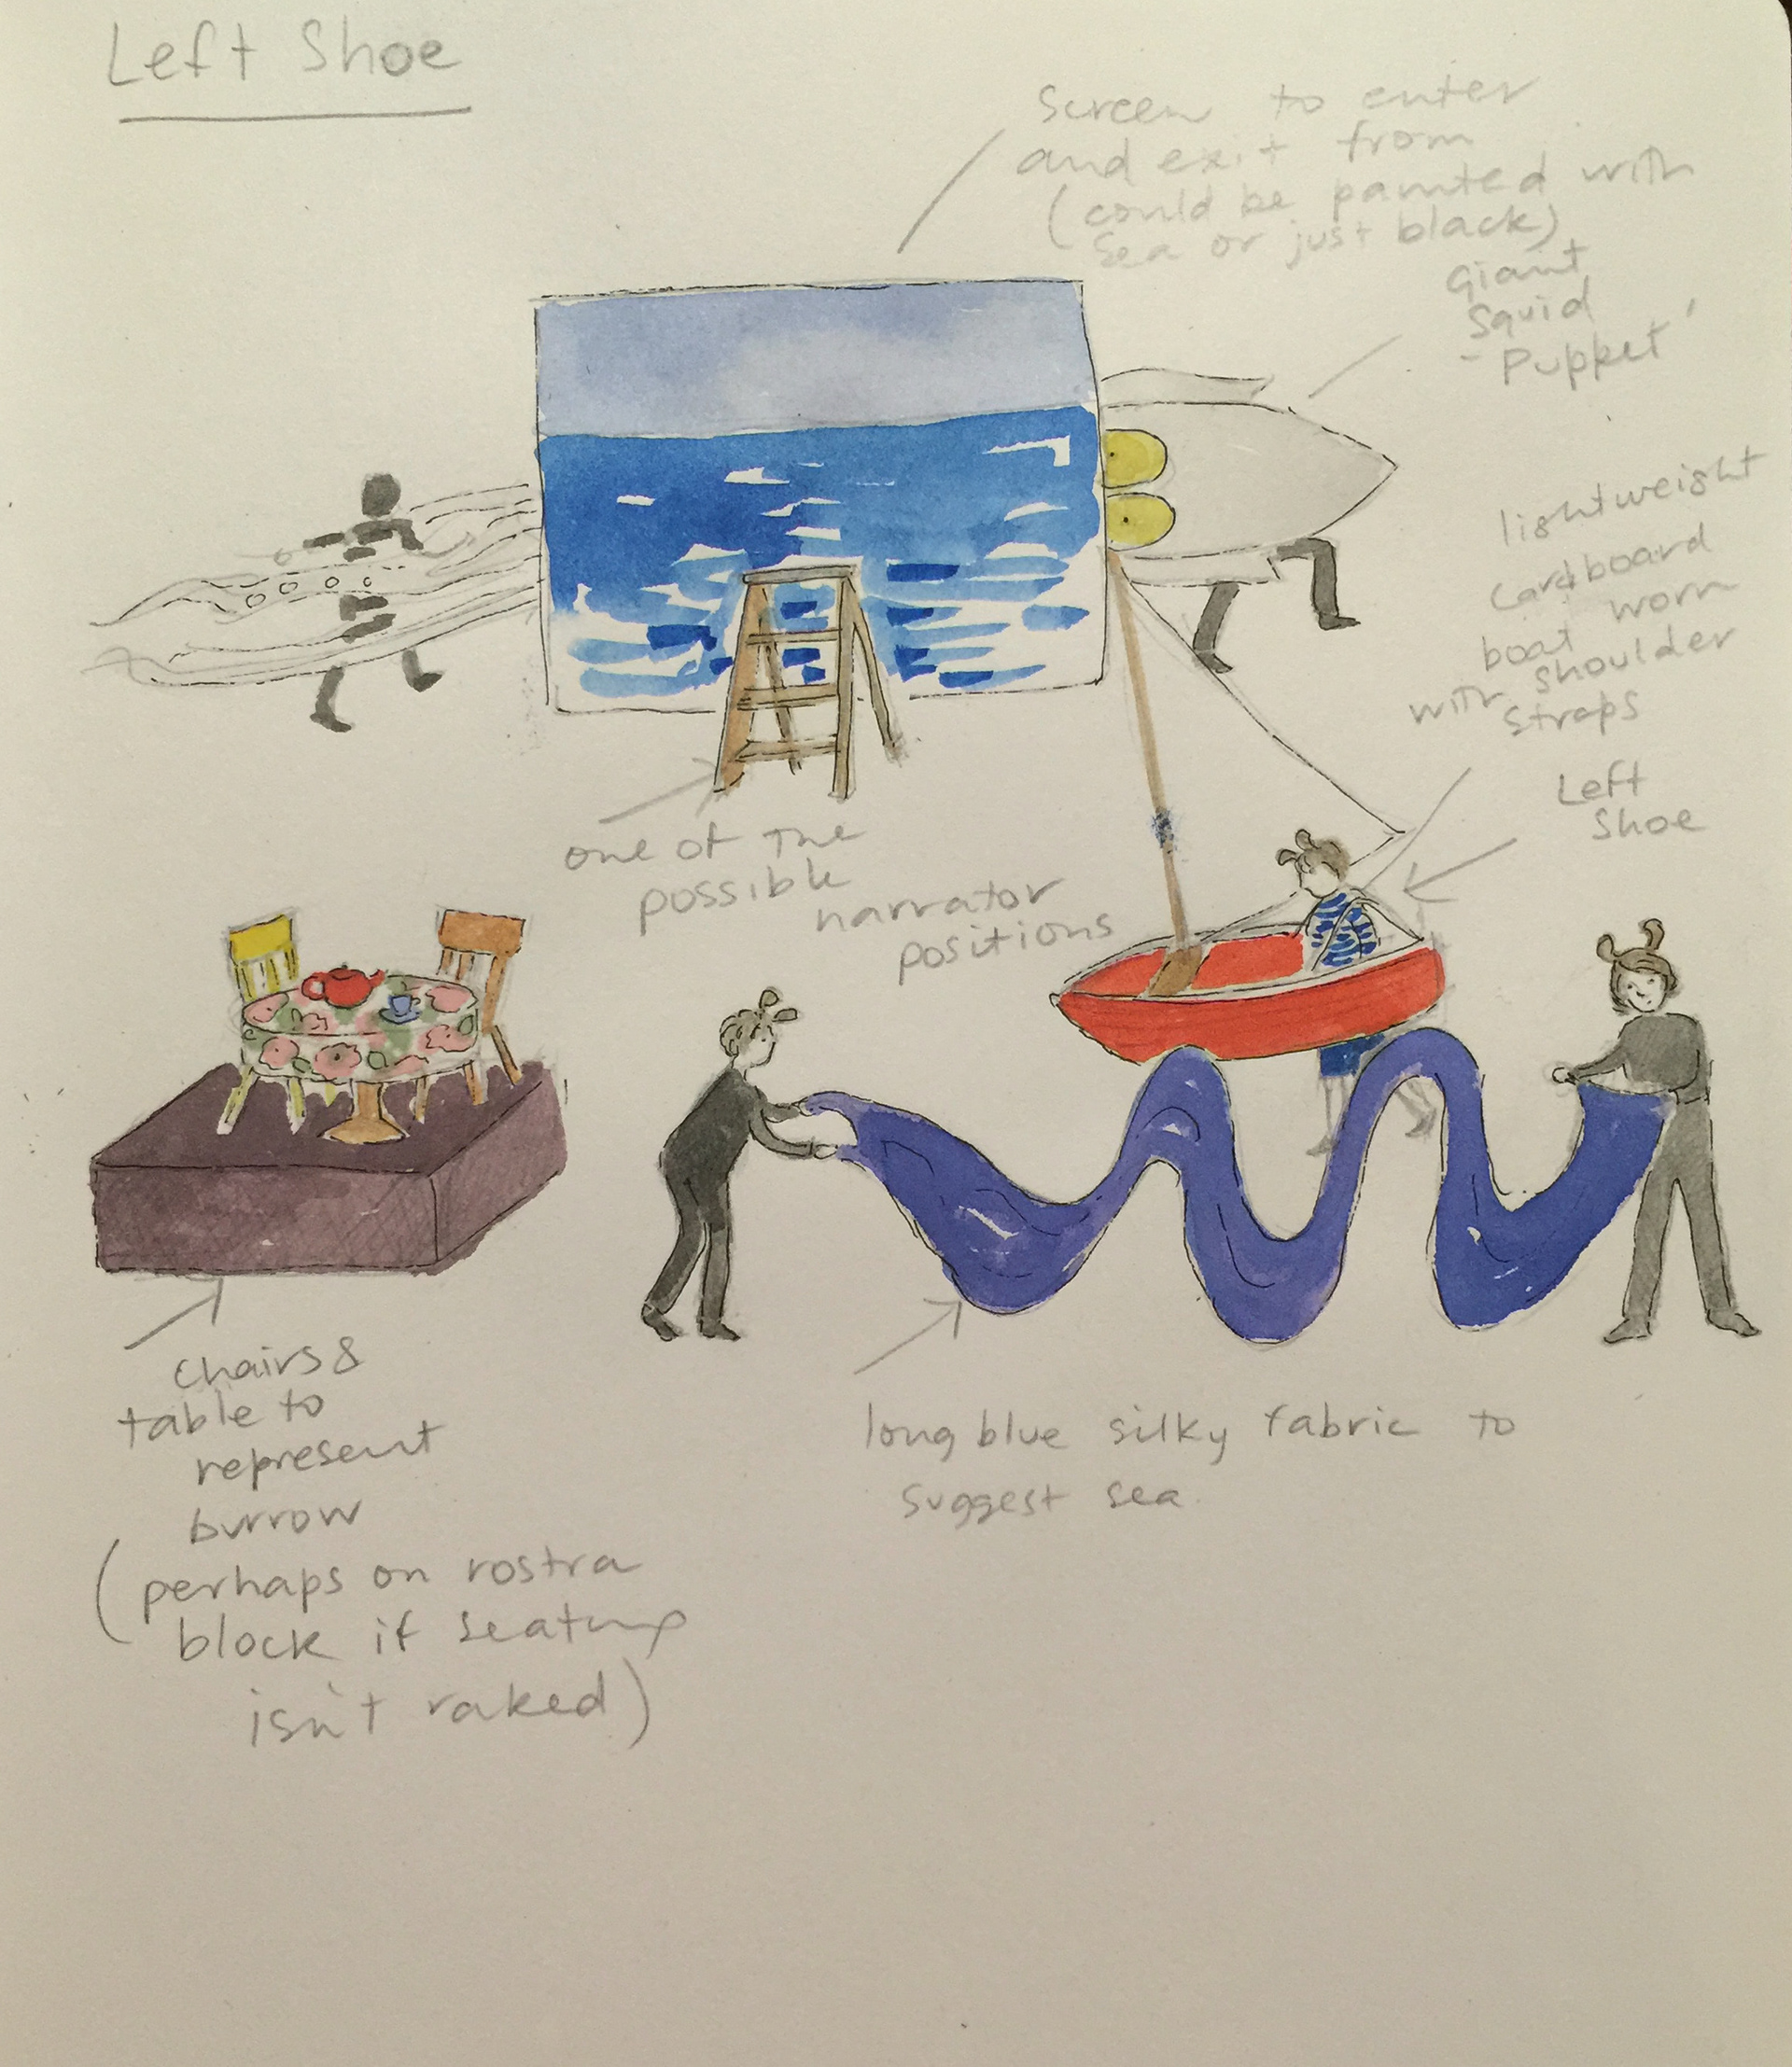 Left Shoe
Screen to enter
and exit from
(could be painted with
sea or just black)
Giant
Squid
- Puppet
lightweight
cardboard
boat worn
with shoulder
straps
Left
Shoe
one of the
possible
narrator
positions
chairs &
table to
represent
burrow
(perhaps on rostra
block if seating
isn't raked)
long blue silky fabric to
suggest sea.